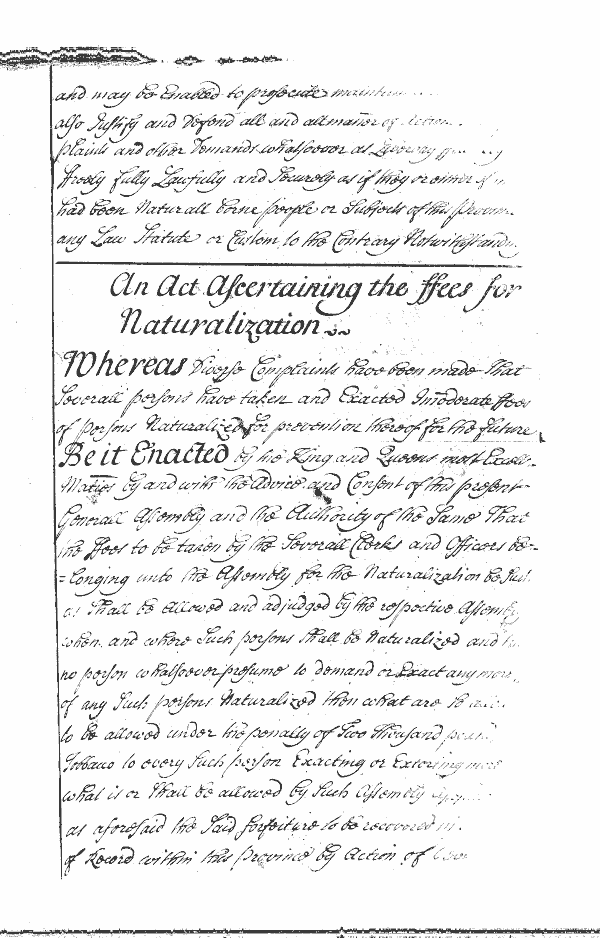 and may be Enabled to prosecute maintain
also Justify and Defend all and all manner of Action
plaints and other Demands whatsoever as
ffreely fully Lawfully and Securely as if they or either of
had been Naturall borne people or Subjects of this Provin
any Law Statute or Custom to the Contrary Notwithstanding
An Act Ascertaining the ffees for
Naturalization
Whereas Diverse Complaints have been made That
Severall persons have taken and Exacted Imoderate ffees
of persons Naturalized for prevention thereof for the future
Be it Enacted by the King and Queens most Excell-
Maties by and with the Advice and Consent of this present
Generall Assembly and the Authority of the Same That
the ffees to be taken by the Severall Clerks and Officers be-
=longing unto the Assembly for the Naturalization be Such
as Shall be allowed and adjudged by the respective Assembly
when and where Such persons Shall be Naturalized and
no person whatsoever presume to demand or Exact any more
of any Such persons Naturalized then what are
to be allowed under the penalty of Two Thousand
Tobbaco to every Such person Exacting or Extorting more
what is or Shall be allowed by Such Assembly
as aforesaid the Said forfeiture to be recovered in
of Record within this Province by Action of